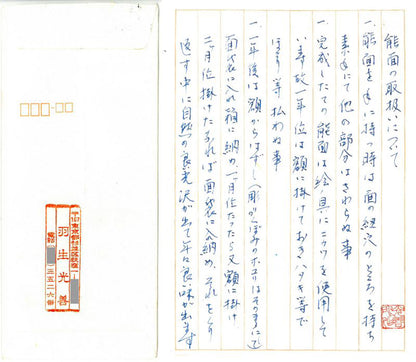 能面の取扱いについて
一、能面を手に持つ時は面の紐穴のところを持ち
素手にて他の部分はさわらぬ事
一、完成したての能面は絵ノ具にニカワを使用して
います故一年位は額に掛けておきハタキ等で
ほこり等払わぬ事
一、一年後は額からはずし(彫りくぼみのホコリはそのまゝにて)
面袋に入れ箱に納め一ヶ月位たったら又額に掛け
二ヶ月位掛けたあれば面袋に入れ納め、それをくり
返す中に自然の良い光沢が出て年々良い味が出ます
羽生光善
電話
三五二六番